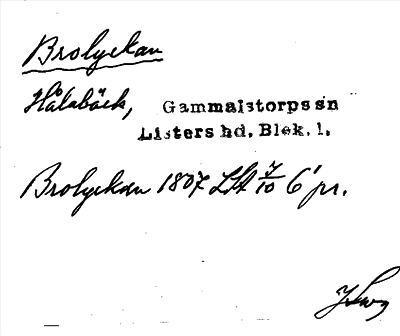 Brolyckan
Hålabäck, Gammalstorps sn
Listers hd. Blek. l.
Brolyckan 1807 LSA 7/10 6' pr.